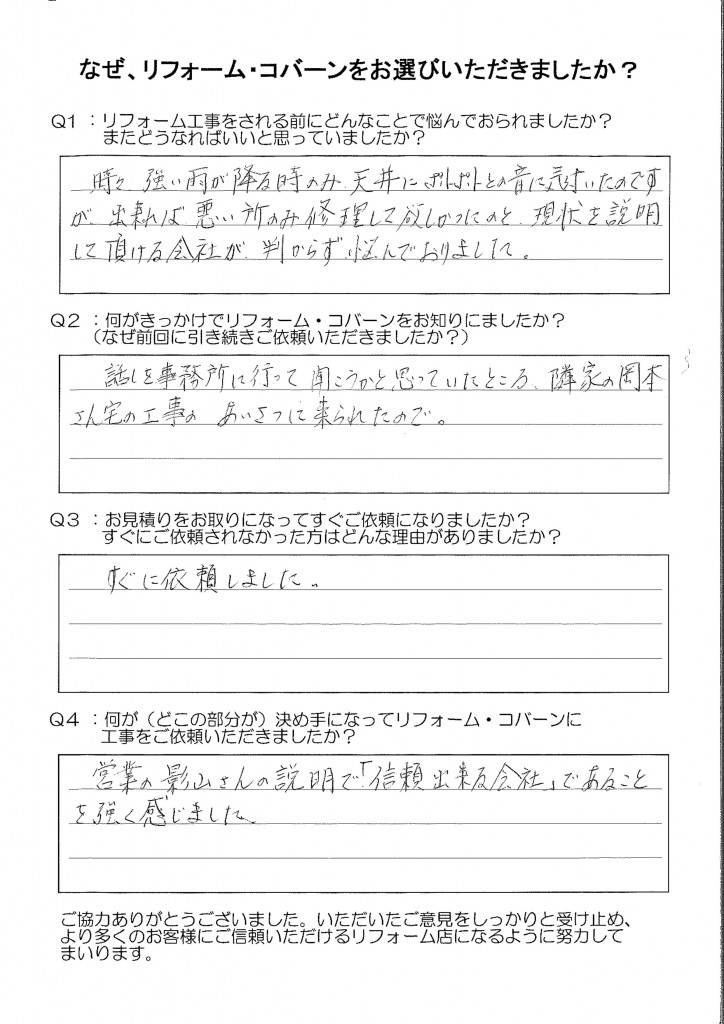 なぜ、リフォーム・コバーンをお選びいただきましたか？
Q1 ：リフォーム工事をされる前にどんなことで悩んでおられましたか？
またどうなればいいと思っていましたか？
時々、強い雨が降る時のみ、天井にポトポトとの音に気付いたのです
が、出来れば悪い所のみ修理して欲しかったのと、現状を説明
して頂ける会社が、判からず悩んでおりました。
Q2 ：何がきっかけでリフォーム・コバーンをお知りにましたか？
（なぜ前回に引き続きご依頼いただきましたか？）
話しを事務所に行って聞こうかと思っていたところ、隣家の岡本
さん宅の工事の あいさつに来られたので。
Q3 ：お見積りをお取りになってすぐご依頼になりましたか？
すぐにご依頼されなかった方はどんな理由がありましたか？
すぐに依頼しました。
Q4 ：何が（どこの部分が）決め手になってリフォーム・コバーンに
工事をご依頼いただきましたか？
営業の影山さんの説明で「信頼出来る会社」であること
を強く感じました。
ご協力ありがとうございました。いただいたご意見をしっかりと受け止め、
より多くのお客様にご信頼いただけるリフォーム店になるように努力して
まいります。